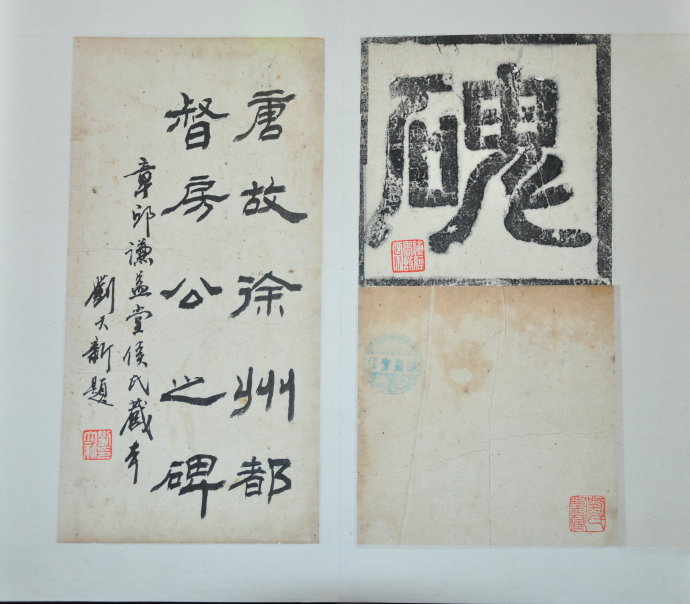 磈
唐故徐州都
督房公之碑
章邱謙益堂侯氏藏本
劉大新題